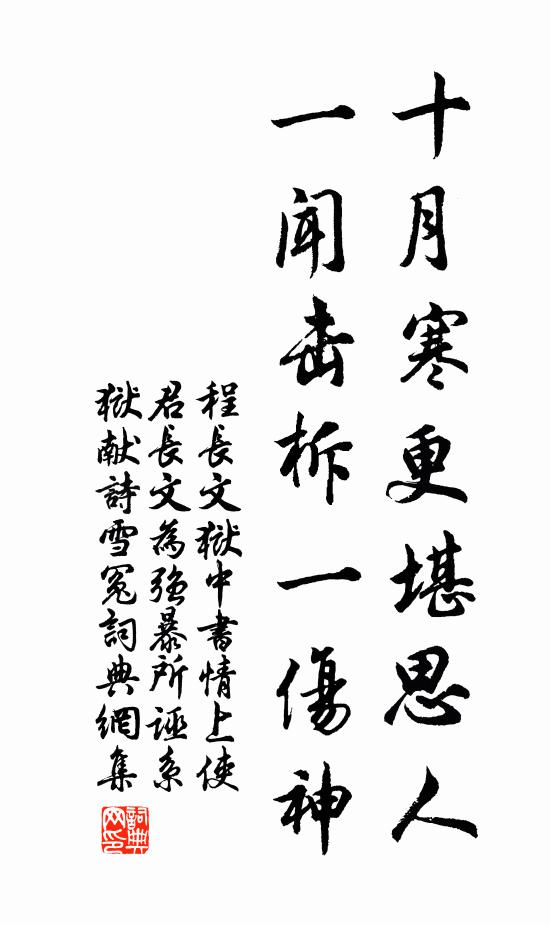 十月寒更堪思人
一聞击柝一傷神
程長文獄中書情上使
君長文為強暴所誣系
獄献詩雪冤詞典網集
詞典
网印